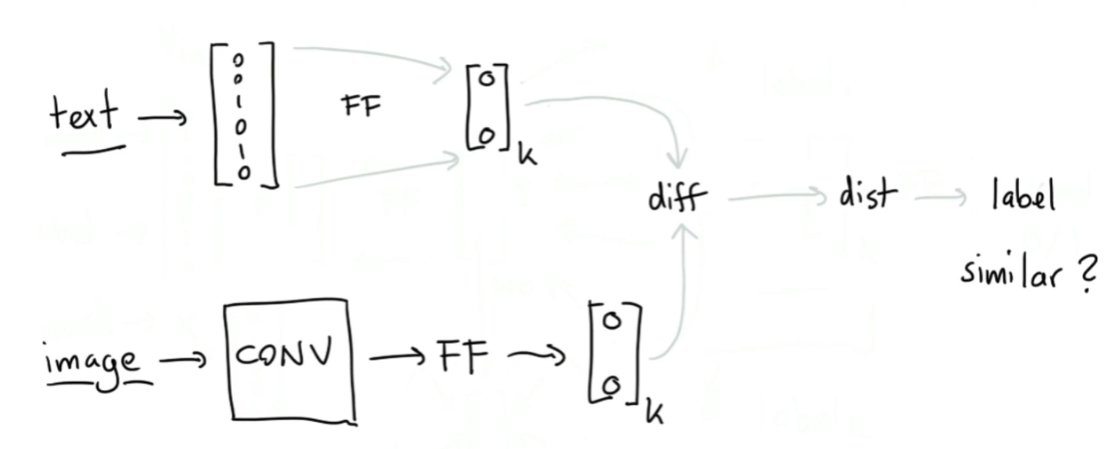 text → [0 0 1 0 1 0] FF [0 0] k
diff → dist → label
similar ?
image → CONV → FF → [0 0] k